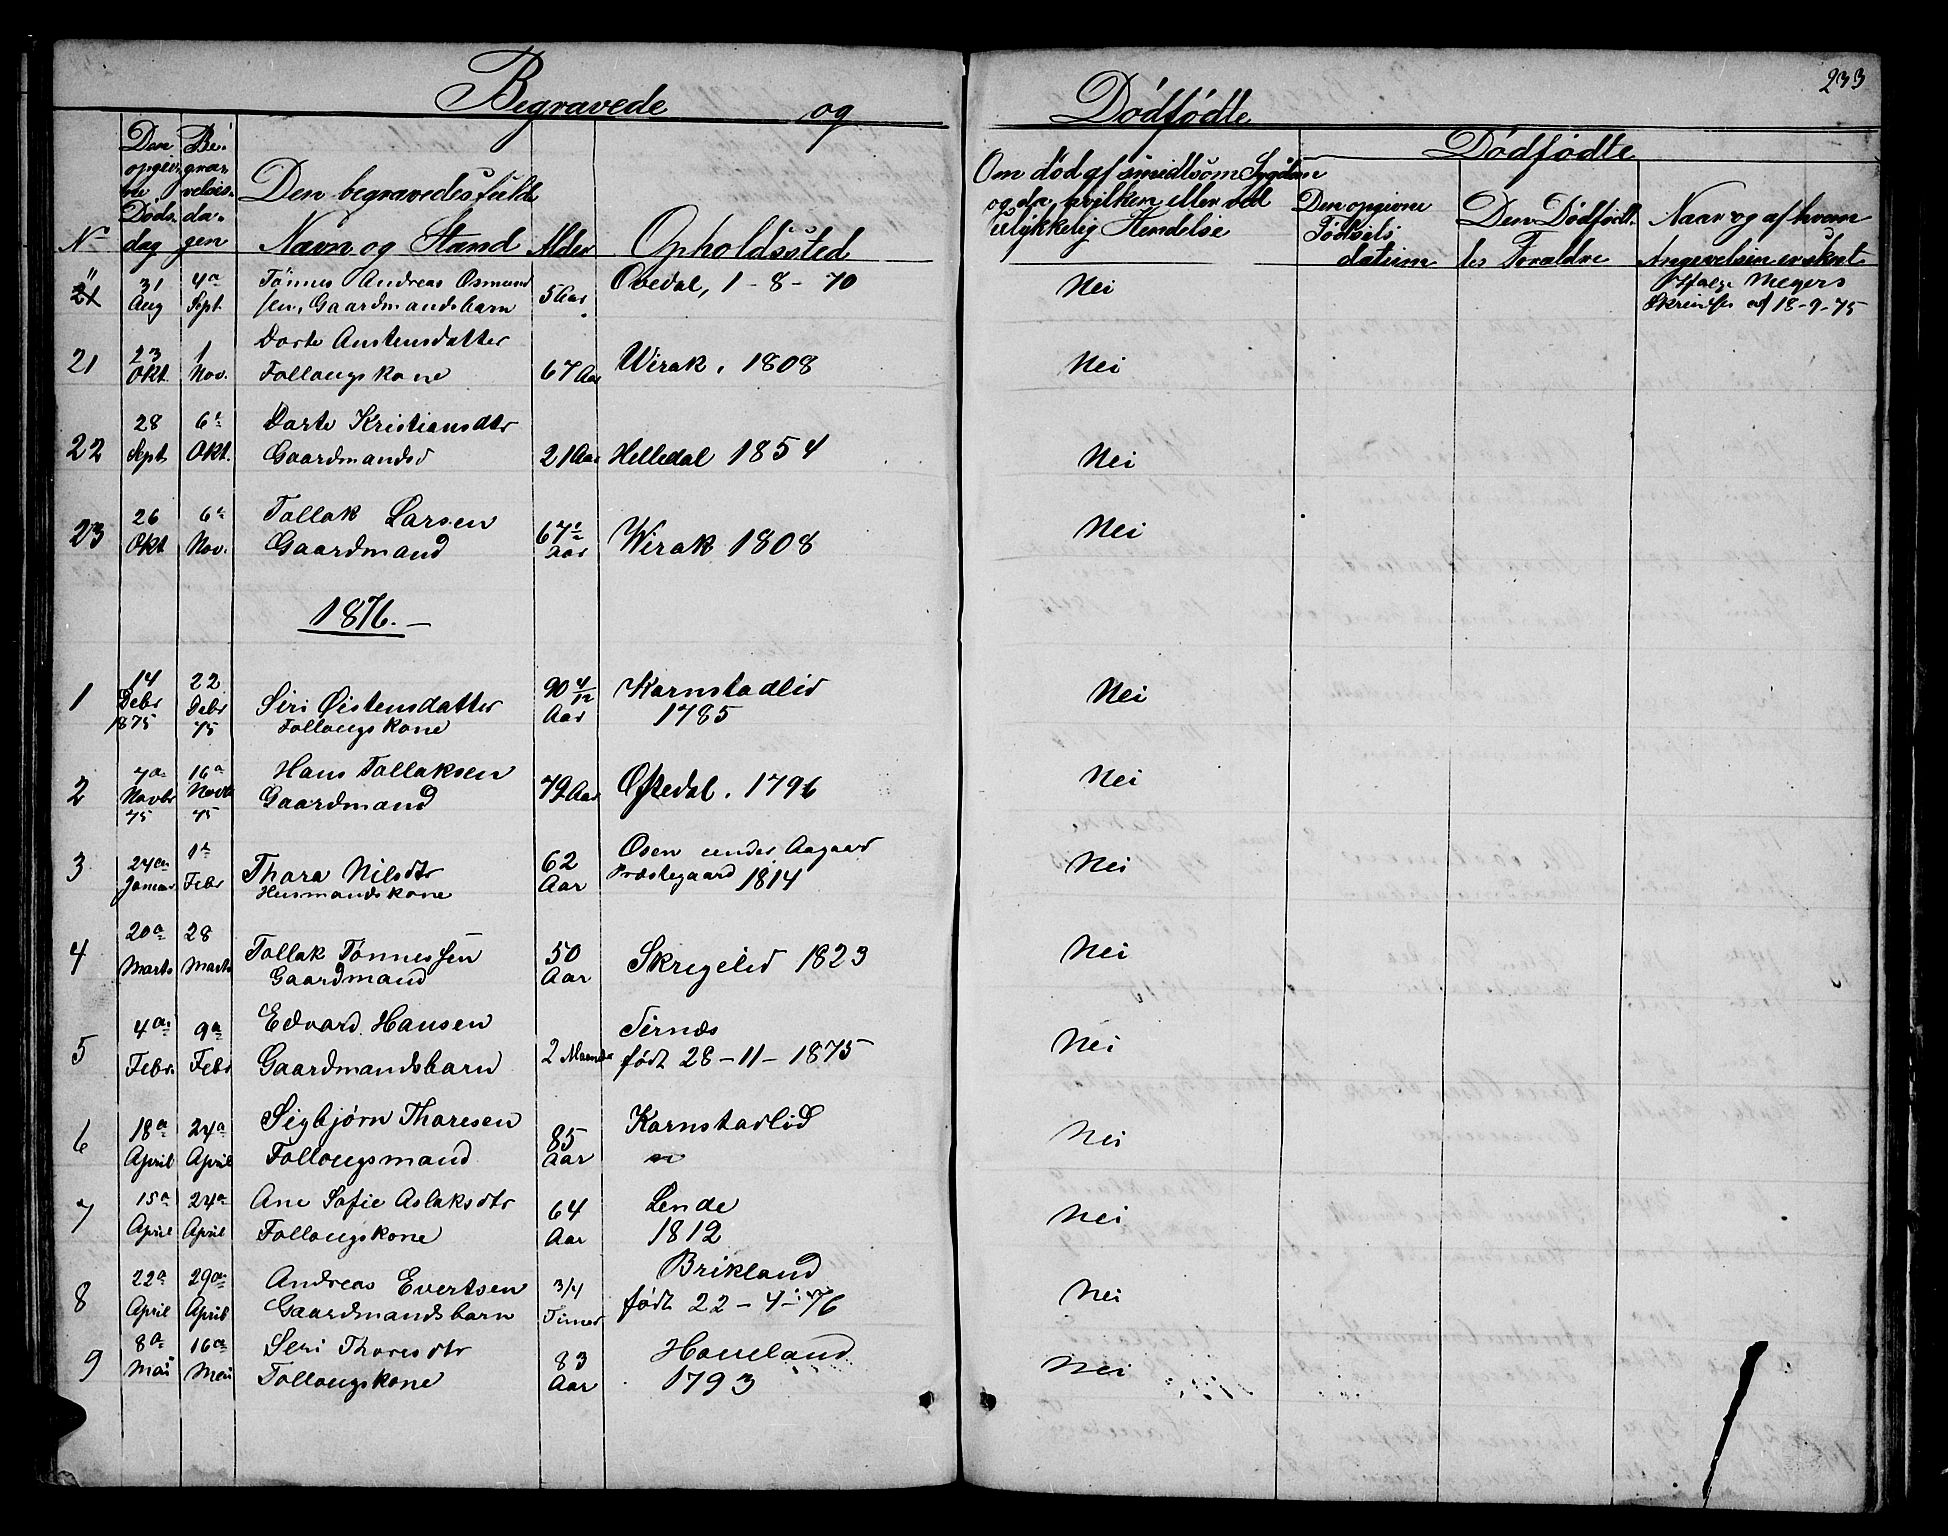 233
Begravede og Dødfødte
N
Den opgivne Døds dag
Begravelsesdagen
Den begravedes fulde Navn og Stand
Alder
Opholdssted
Om død af smidtsom Sygdom og da hvilken eller ved Ulykkelig Hendelse
Dødfødte
Den opgivne Fødsels datum
Den Dødfødtes Forældre
Naar og af hvem Angevelsen er skeet
21 31 Aug 4a Sept Tønnes Andreas Osmundsen, Gaardmandsbarn 5 Aar Ovedal, 1-8-70 Nei 18-9-75
21 23 Okt. 1 Nov. Dorte Austensdatter Follougskone 67 Aar Wirak. 1808 Nei
22 28 Sept 6te Okt. Dorte Kristiansdtr Gaardmandsd 21 Aar Helledal 1854 Nei
23 26 Okt 6te Nov. Tollak Larsen Gaardmand 67 Aar Wirak 1808 Nei
1876.
1 14 Debr 1875 22 Debr 75 Siri Øistensdatter Follougskone 90 4/12 Aar Karnstadlid 1785 Nei
2 7a Novbr 75 16a Novb 75 Hans Tollaksen Gaardmand 79 Aar Øftedal. 1796 Nei
3 24a Januar 1a Febr Thora Nilsdtr Husmandskone 62 Aar Osen under Aagaard Præstegaard 1814 Nei
4 20a Marts 28 Marts Tollak Tønnessen Gaardmand 50 Aar Skregelid 1823 Nei
5 4a Febr. 9a Febr Edvard Hansen Gaardmandsbarn 2 Maaneder Ternæs født 28-11-1875 Nei
6 18a April 24a April Sigbjørn Thoresen Follougsmand 85 Aar Karnstadlid Nei
7 15a April 24a April Ane Sofie Aslaksdtr Follougskone 64 Aar Lende 1812 Nei
8 22a April 29a April Andreas Evertsen Gaardmandsbarn 3/4 Timer Brikland født 22-4-76 Nei
9 8a Mai 16a Mai Seri Thoresdtr Follougskone 83 Aar Houeland 1793 Nei